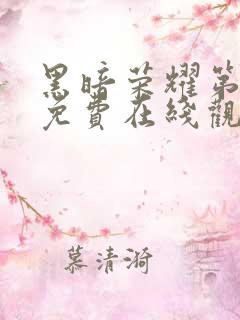 黑暗荣耀第
免費在綫觀
慕清漪